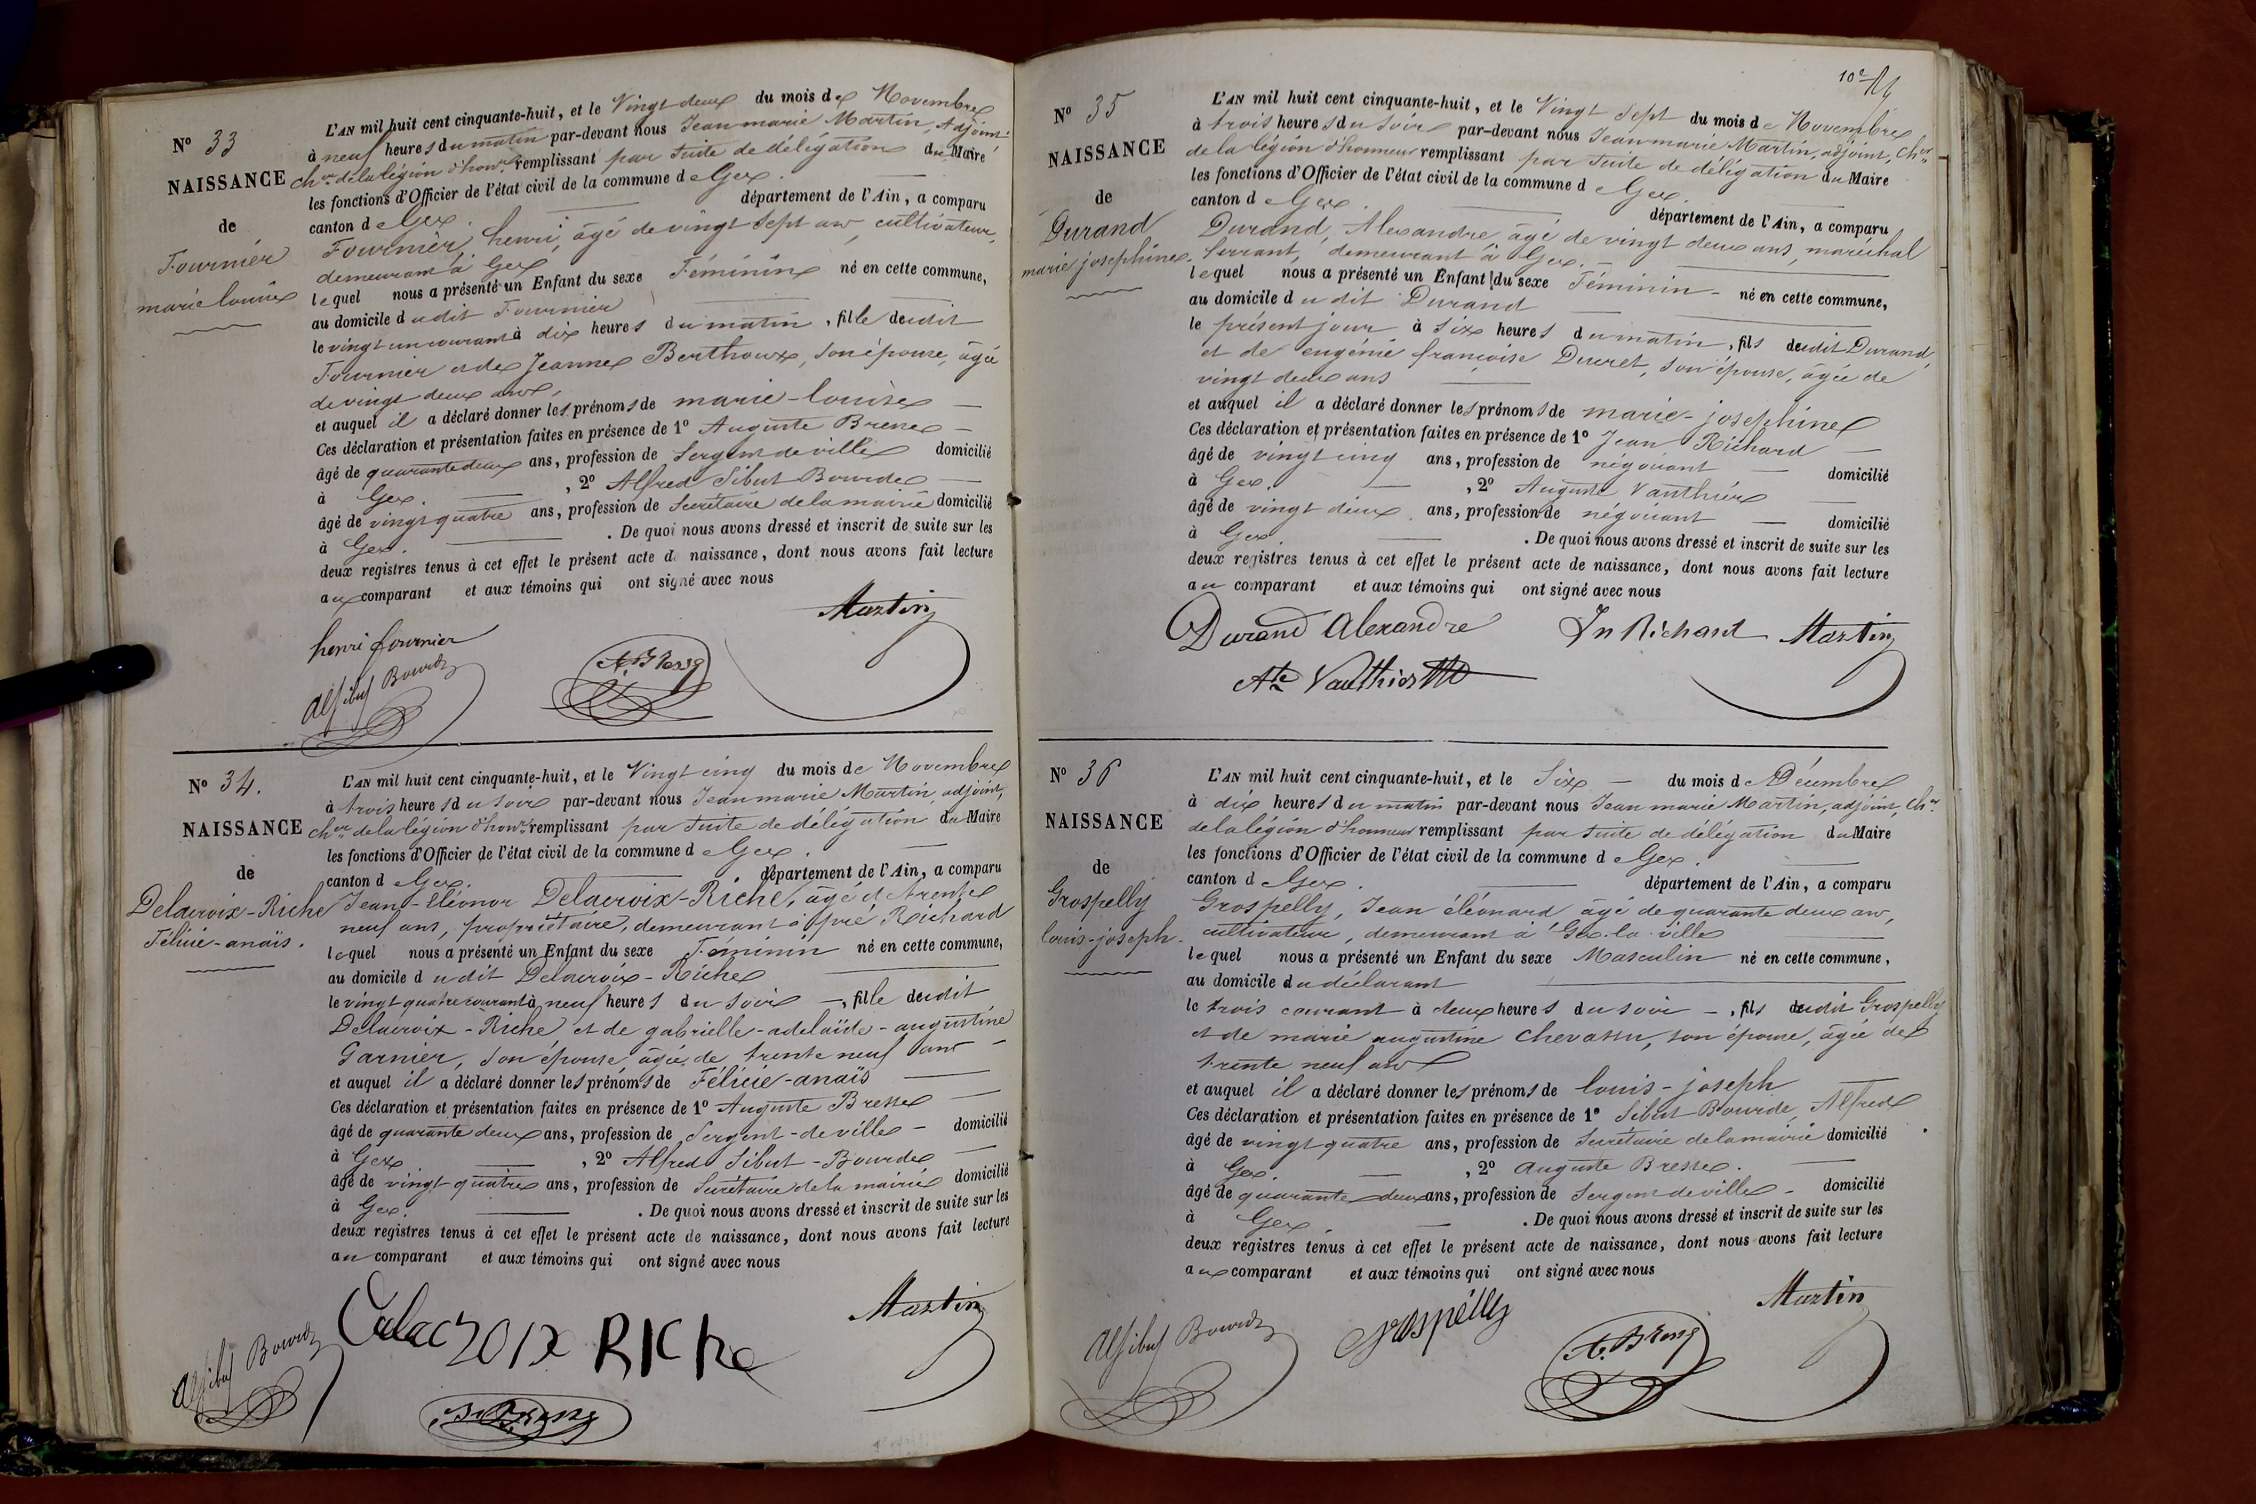 N° 33
NAISSANCE
de
Fournier
marie louise
L'AN mil huit cent cinquante-huit, et le Vingt deux du mois de Novembre
à neuf heures du matin par-devant nous Jean marie Martin, Adjoint
cher de la légion d'honr remplissant par suite de délégation du Maire
les fonctions d'Officier de l'état civil de la commune de Gex.
canton de Gex. département de l'Ain, a comparu
Fournier, henri, âgé de vingt sept ans, cultivateur,
demeurant à Gex
lequel nous a présenté un Enfant du sexe Féminin né en cette commune,
au domicile dudit Fournier
le vingt un courant à dix heures du matin, fille dudit
Fournier et de Jeanne Berthoux, son épouse, âgée
de vingt deux ans,
et auquel il a déclaré donner les prénoms de marie-louise
Ces déclaration et présentation faites en présence de 1° Auguste Bresse
âgé de quarante deux ans, profession de Sergent de ville domicilié
à Gex. , 2° Alfred Sibut Bourde
âgé de vingt quatre ans, profession de Secrétaire de la mairie domicilié
à Gex. . De quoi nous avons dressé et inscrit de suite sur les
deux registres tenus à cet effet le présent acte de naissance, dont nous avons fait lecture
au comparant et aux témoins qui ont signé avec nous
Martin
henri fournier
A. Bresse
Alf Sibut Bourde
N° 34.
NAISSANCE
de
Delacroix-Riche
Félicie-anaïs.
L'AN mil huit cent cinquante-huit, et le Vingt cinq du mois de Novembre
à trois heures du soir par-devant nous Jean marie Martin, adjoint,
cher de la légion d'honr remplissant par suite de délégation du Maire
les fonctions d'Officier de l'état civil de la commune de Gex.
canton de Gex. département de l'Ain, a comparu
Jean-Eléonor Delacroix-Riche, âgé de trente
neuf ans, propriétaire, demeurant à pré Richard
lequel nous a présenté un Enfant du sexe Féminin né en cette commune,
au domicile dudit Delacroix-Riche
le vingt quatre courant à neuf heures du soir, fille dudit
Delacroix-Riche et de gabrielle-adelaïde-augustine
Garnier, son épouse âgée de trente neuf ans
et auquel il a déclaré donner les prénoms de Félicie-anaïs
Ces déclaration et présentation faites en présence de 1° Auguste Bresse
âgé de quarante deux ans, profession de Sergent-de ville domicilié
à Gex , 2° Alfred Sibut-Bourde
âgé de vingt quatre ans, profession de Secrétaire de la mairie domicilié
à Gex. . De quoi nous avons dressé et inscrit de suite sur les
deux registres tenus à cet effet le présent acte de naissance, dont nous avons fait lecture
au comparant et aux témoins qui ont signé avec nous
Martin
Delacroix Riche
Alf Sibut Bourde
A. Bresse
N° 35
NAISSANCE
de
Durand
marie josephine.
L'AN mil huit cent cinquante-huit, et le Vingt Sept du mois de Novembre
à trois heures du soir par-devant nous Jean marie Martin, adjoint, cher
de la légion d'honneur remplissant par suite de délégation du Maire
les fonctions d'Officier de l'état civil de la commune de Gex.
canton de Gex. département de l'Ain, a comparu
Durand, Alexandre âgé de vingt deux ans, maréchal
ferrant, demeurant à Gex.
lequel nous a présenté un Enfant du sexe Féminin né en cette commune,
au domicile dudit Durand
le présent jour à Six heures du matin, fils dudit Durand,
et de eugénie françoise Ducret, son épouse, âgée de
vingt deux ans
et auquel il a déclaré donner les prénoms de marie-josephine
Ces déclaration et présentation faites en présence de 1° Jean Richard
âgé de vingt cinq ans, profession de négociant domicilié
à Gex. , 2° Auguste Vauthier
âgé de vingt deux ans, profession de négociant domicilié
à Gex. . De quoi nous avons dressé et inscrit de suite sur les
deux registres tenus à cet effet le présent acte de naissance, dont nous avons fait lecture
au comparant et aux témoins qui ont signé avec nous
Durand Alexandre Jn Richard Martin
Ate Vauthier
N° 36
NAISSANCE
de
Grospelly
louis-joseph.
L'AN mil huit cent cinquante-huit, et le Six du mois de Décembre
à dix heures du matin par-devant nous Jean marie Martin, adjoint, cher
de la légion d'honneur remplissant par suite de délégation du Maire
les fonctions d'Officier de l'état civil de la commune de Gex.
canton de Gex. département de l'Ain, a comparu
Grospelly, Jean éléonard âgé de quarante deux ans,
cultivateur, demeurant à Gex-la-ville
lequel nous a présenté un Enfant du sexe Masculin né en cette commune,
au domicile du déclarant
le trois courant à deux heures du soir, fils dudit Grospelly
et de marie augustine Chevassu, son épouse, âgée de
trente neuf ans
et auquel il a déclaré donner les prénoms de louis-joseph
Ces déclaration et présentation faites en présence de 1° Sibut Bourde, Alfred
âgé de vingt quatre ans, profession de Secrétaire de la mairie domicilié
à Gex. , 2° Auguste Bresse.
âgé de quarante deux ans, profession de Sergent de ville domicilié
à Gex. . De quoi nous avons dressé et inscrit de suite sur les
deux registres tenus à cet effet le présent acte de naissance, dont nous avons fait lecture
au comparant et aux témoins qui ont signé avec nous
Martin
Alf Sibut Bourde Grospélly A. Bresse